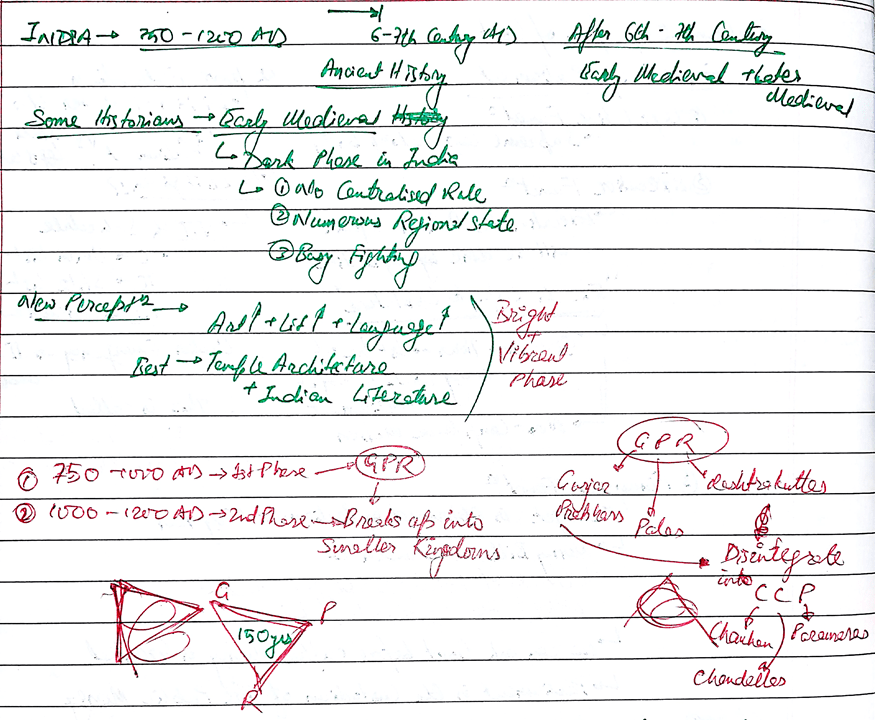 INDIA → 750 - 1200 AD
6-7th Century AD
After 6th - 7th Century
Ancient History
Early Medieval + Later Medieval
Some Historians → Early Medieval History
↳ Dark Phase in India
↳ ① No Centralised Rule
② Numerous Regional State
③ Busy Fighting
New Percept^n →
Art↑ + Lit↑ + Language↑
Best → Temple Architecture
+ Indian Literature
Bright
+
Vibrant
Phase
GPR
① 750 - 1000 AD → 1st Phase → GPR
Gurjar
Palas
Rashtrakuttas
② 1000 - 1200 AD → 2nd Phase → Breaks up into
Smaller Kingdoms
Disintegrate
into
C C P
G
P
150 yrs
R
Chauhan
Paramaras
Chandelles